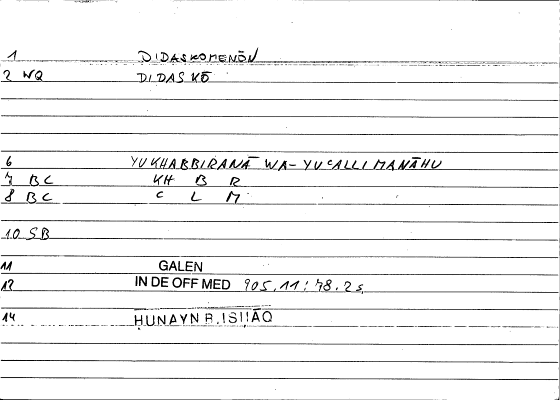 1 DIDASKOMENŌN
2 WQ DIDASKŌ
6 YUKHABBIRANĀ WA-YUᶜALLIMANĀHU
7 BC KH B R
8 BC ᶜ L M
10 SB
11 GALEN
12 IN DE OFF MED 905.11:78.2s
14 ḤUNAYN B. ISḤĀQ